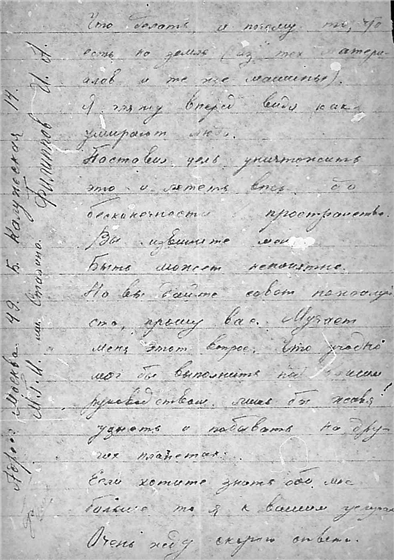 Что делать и потому то, что
есть на земле (из тех матери-
алов и те же машины).
Я гляжу вперед видя как
умирают
Поставил цель уничтожить
это и лететь в
бесконечность пространства.
Вы извините
Быть может непонятно.
Но вы дайте совет пожалуй-
ста, прошу вас. Мучает
меня этот вопрос. Что угодно
мог бы выполнить под вашим
руководством лишь бы
узнать и побывать на дру-
гих планетах.
Если хотите знать обо мне
больше то я к вашим услугам
Очень жду скорого ответа.
Адрес Москва 49. Б. Калужская 14.
М.Г.И. им. Сталина. Филиппов И. А.